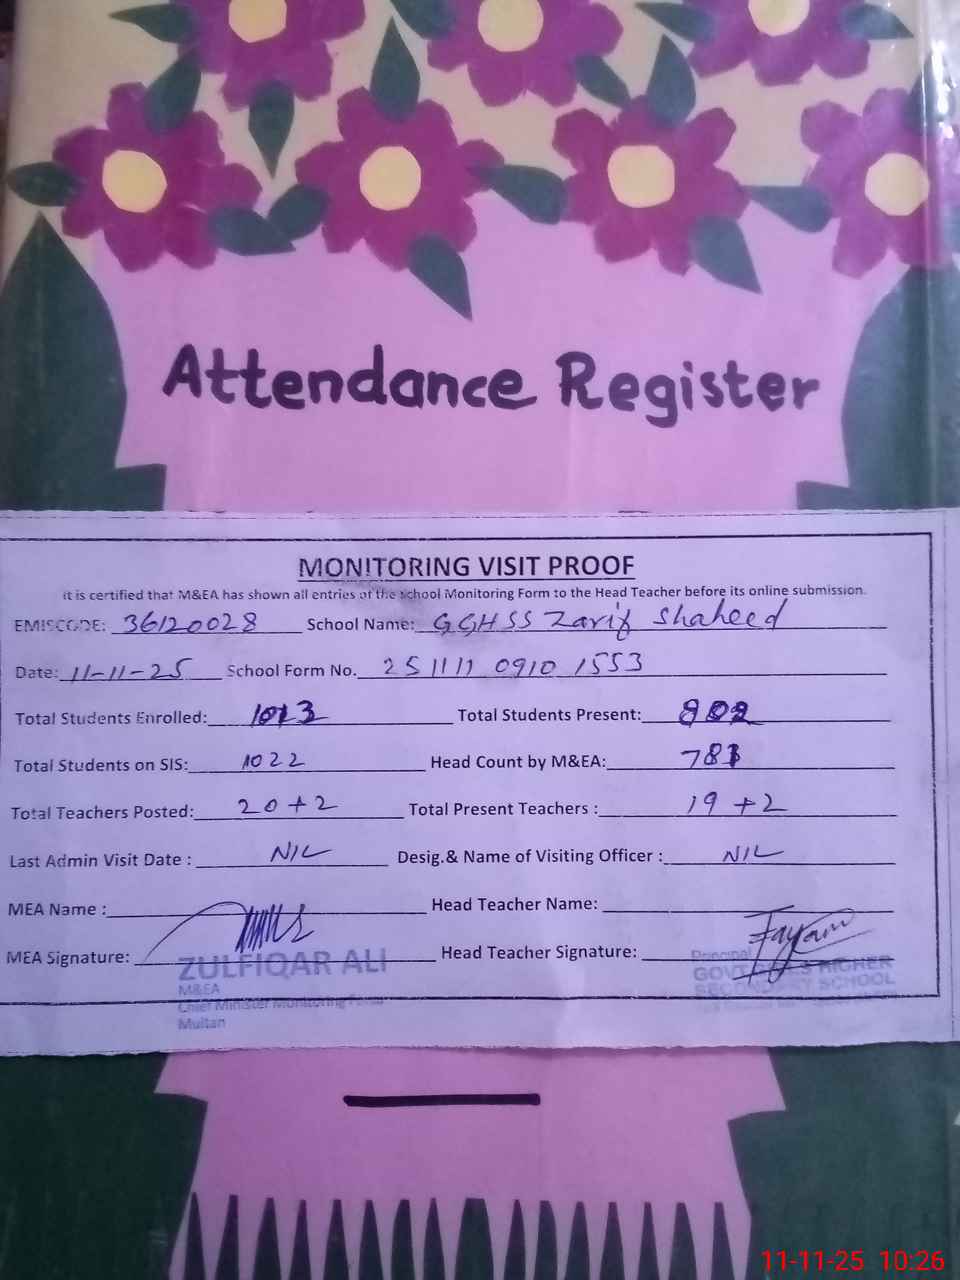 Attendance Register
MONITORING VISIT PROOF
It is certified that M&EA has shown all entries of the school Monitoring Form to the Head Teacher before its online submission.
EMISCODE: 36120028 School Name: GGHSS Zarif Shaheed
Date: 11-11-25 School Form No. 251111 0910 1553
Total Students Enrolled: 1013 Total Students Present:
Total Students on SIS: 1022 Head Count by M&EA:
Total Teachers Posted: 20+2 Total Present Teachers : 19+2
Last Admin Visit Date : NIL Desig.& Name of Visiting Officer : NIL
MEA Name : Head Teacher Name:
MEA Signature: Head Teacher Signature:
ZULFIQAR ALI
M&EA
Chief Minister Monitoring Force
Multan
Principal
GOVT GIRLS HIGHER
SECONDARY SCHOOL
11-11-25 10:26